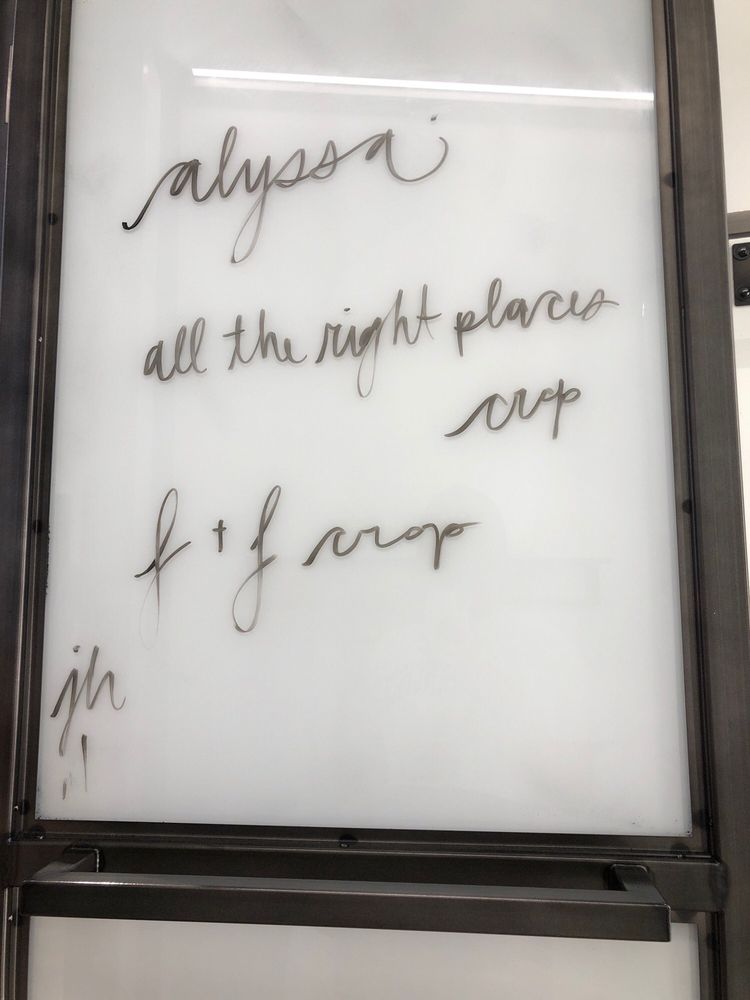 alyssa
all the right places
crop
f + f crop
jh